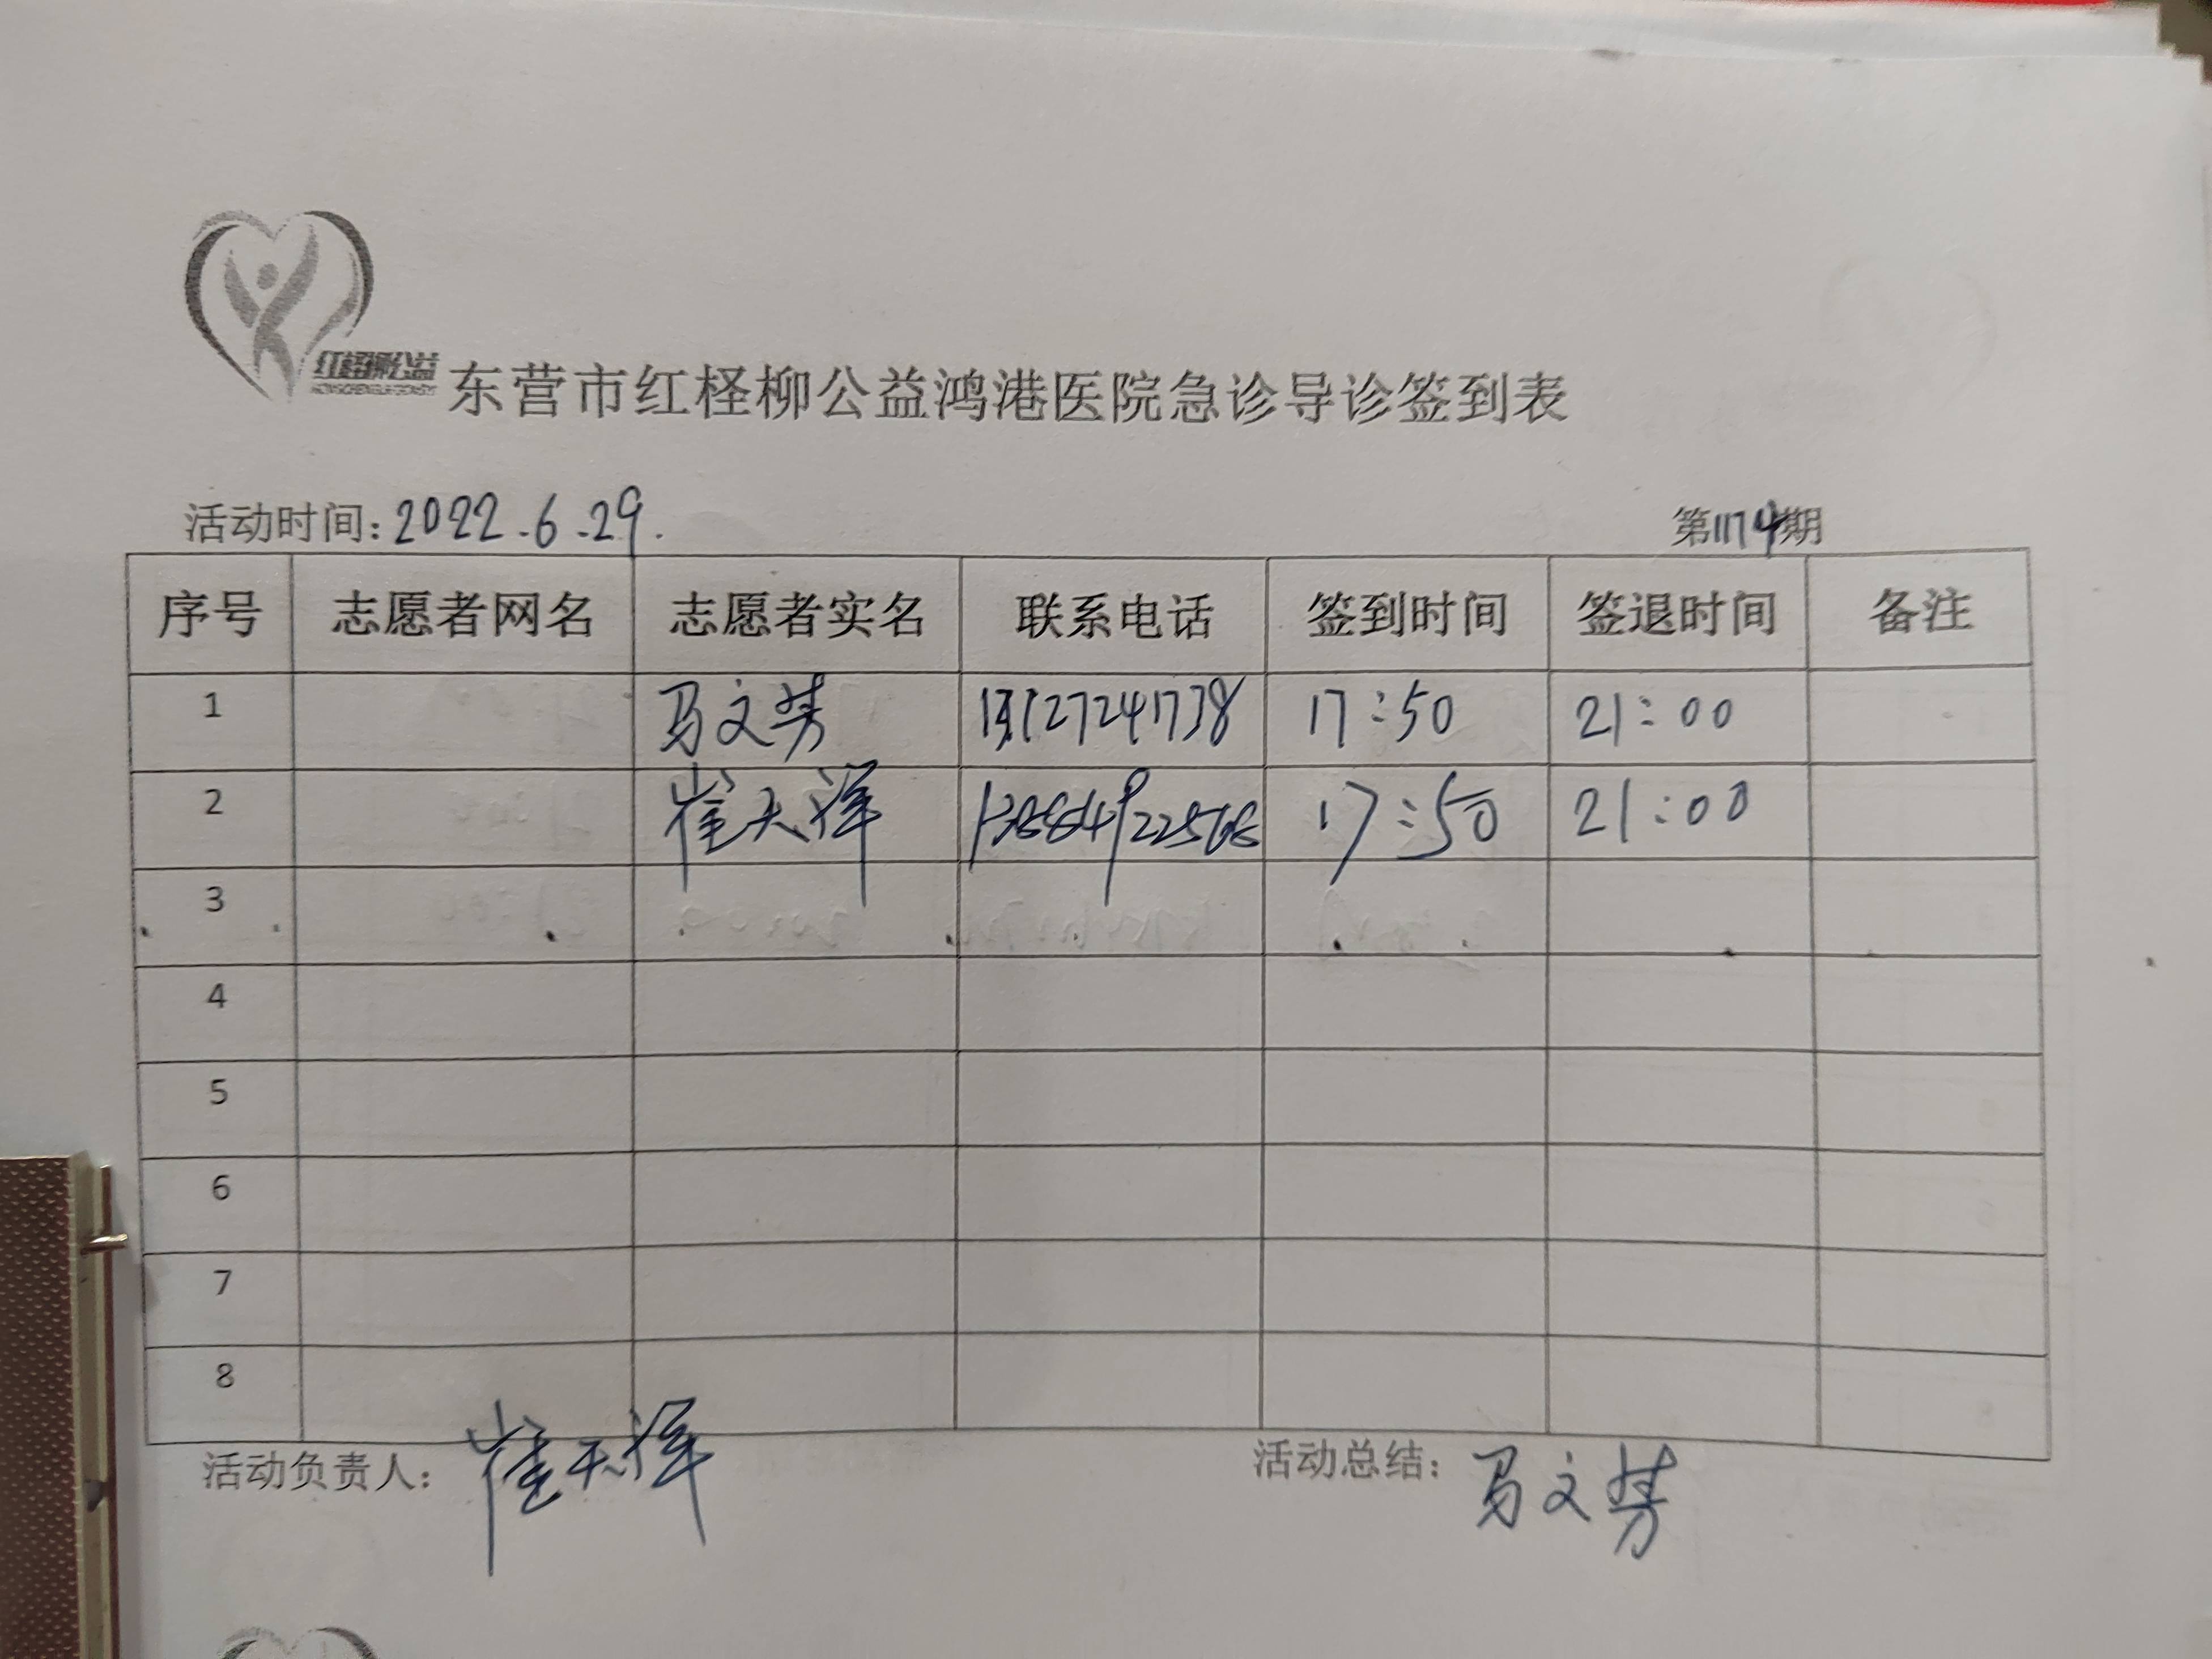 红柽柳公益
东营市红柽柳公益鸿港医院急诊导诊签到表
活动时间：2022.6.29.
第1174期
序号 志愿者网名 志愿者实名 联系电话 签到时间 签退时间 备注
1 马文芳 17:50 21:00
2 崔天洋 17:50 21:00
3
4
5
6
7
8
活动负责人：崔天洋
活动总结：马文芳